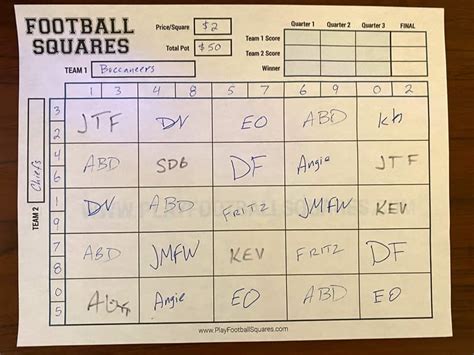 FOOTBALL SQUARES
Price/Square $2
Total Pot $50
Quarter 1 Quarter 2 Quarter 3 FINAL
Team 1 Score
Team 2 Score
Winner
TEAM 1 Buccaneers
1 3 4 8 5 7 6 9 0 2
TEAM 2 Chiefs
3 2 JTF DV EO ABD Kh
4 6 ABD SDB DF Angie JTF
1 9 DV ABD FRITZ JMFW KEV
7 8 ABD JMFW KEV FRITZ DF
0 5 Angie EO ABD EO
www.PlayFootballSquares.com